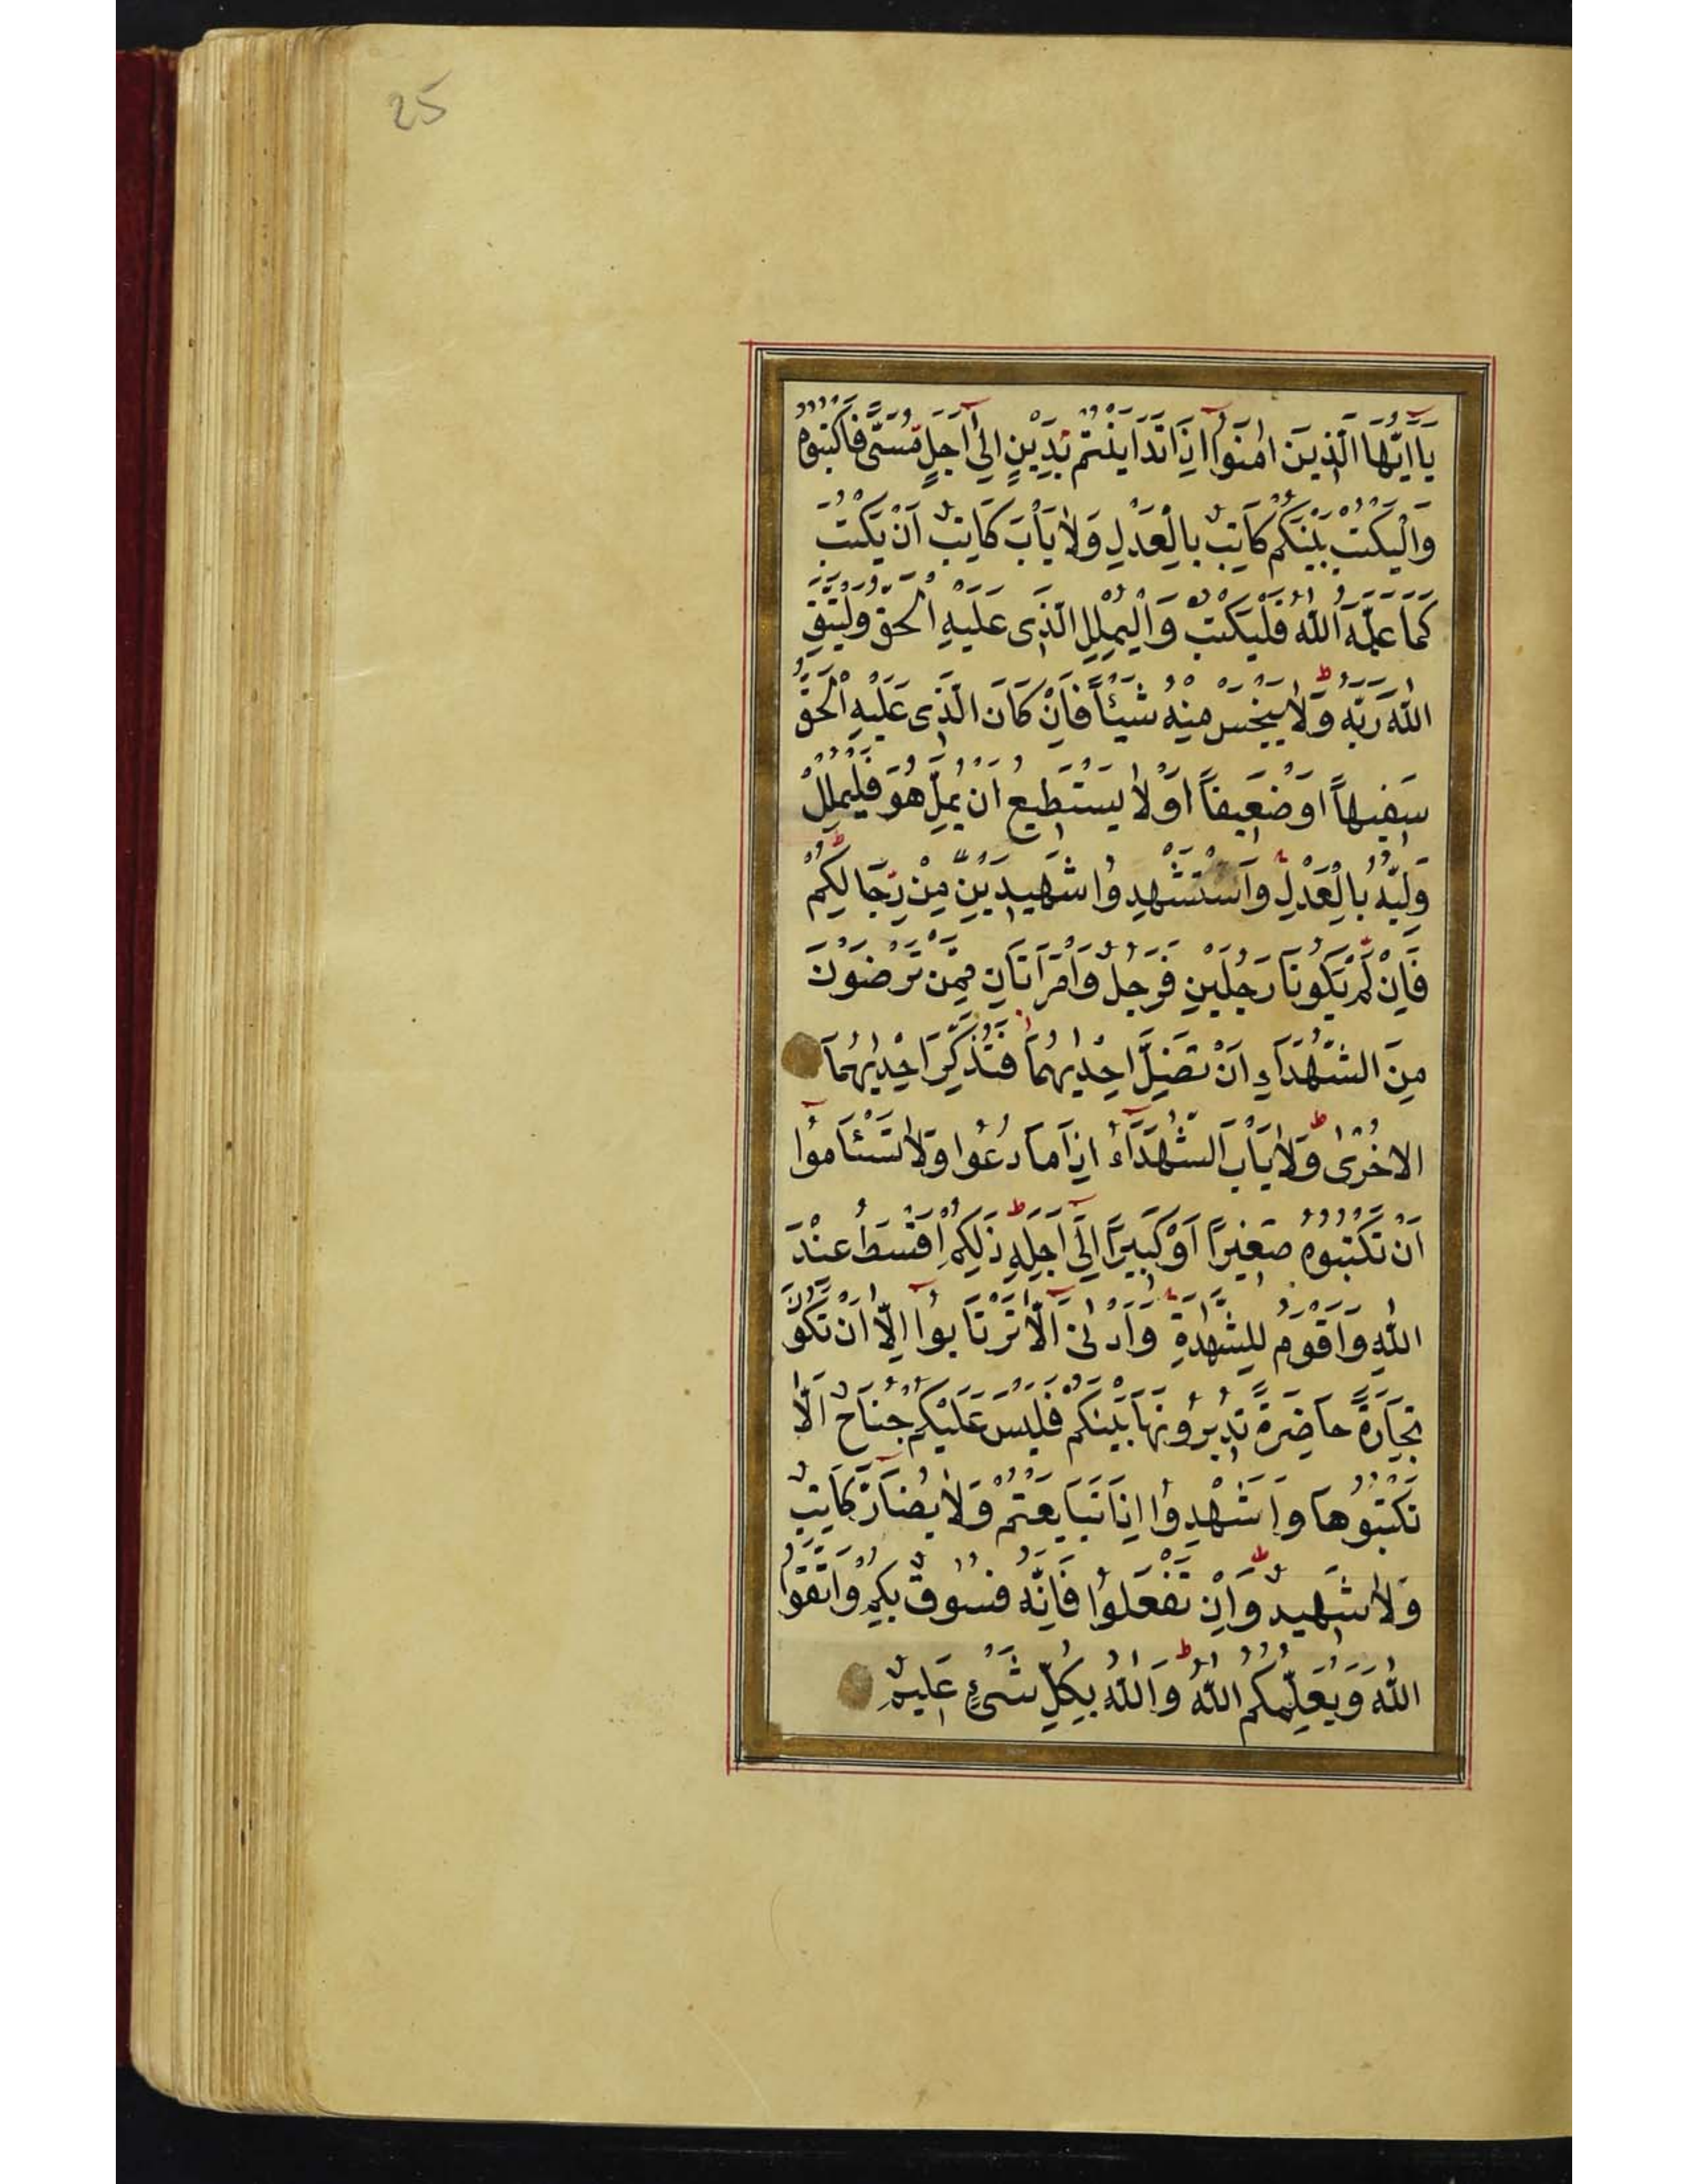 25
يَا اَيُّهَا الَّذِينَ اٰمَنُوا اِذَا تَدَايَنْتُمْ بِدَيْنٍ اِلٰى اَجَلٍ مُسَمًّى فَاكْتُبُوهُ
وَالْيَكْتُبْ بَيْنَكُمْ كَاتِبٌ بِالْعَدْلِ وَلَا يَأْبَ كَاتِبٌ اَنْ يَكْتُبَ
كَمَا عَلَّمَهُ اللّٰهُ فَلْيَكْتُبْ وَالْيُمْلِلِ الَّذِى عَلَيْهِ الْحَقُّ وَلْيَتَّقِ
اللّٰهَ رَبَّهُ وَلَا يَبْخَسْ مِنْهُ شَيْئًا فَاِنْ كَانَ الَّذِى عَلَيْهِ الْحَقُّ
سَفِيهًا اَوْ ضَعِيفًا اَوْ لَا يَسْتَطِيعُ اَنْ يُمِلَّ هُوَ فَلْيُمْلِلْ
وَلِيُّهُ بِالْعَدْلِ وَاسْتَشْهِدُوا شَهِيدَيْنِ مِنْ رِجَالِكُمْ
فَاِنْ لَمْ يَكُونَا رَجُلَيْنِ فَرَجُلٌ وَامْرَاَتَانِ مِمَّنْ تَرْضَوْنَ
مِنَ الشُّهَدَاءِ اَنْ تَضِلَّ اِحْدٰيهُمَا فَتُذَكِّرَ اِحْدٰيهُمَا
الْاُخْرٰى وَلَا يَأْبَ الشُّهَدَاءُ اِذَا مَا دُعُوا وَلَا تَسْئَامُوا
اَنْ تَكْتُبُوهُ صَغِيرًا اَوْ كَبِيرًا اِلٰى اَجَلِهِ ذٰلِكُمْ اَقْسَطُ عِنْدَ
اللّٰهِ وَاَقْوَمُ لِلشَّهٰدَةِ وَاَدْنٰى اَلَّا تَرْتَابُوا اِلَّا اَنْ تَكُونَ
تِجَارَةً حَاضِرَةً تُدِيرُونَهَا بَيْنَكُمْ فَلَيْسَ عَلَيْكُمْ جُنَاحٌ اَلَّا
تَكْتُبُوهَا وَاَشْهِدُوا اِذَا تَبَايَعْتُمْ وَلَا يُضَارَّ كَاتِبٌ
وَلَا شَهِيدٌ وَاِنْ تَفْعَلُوا فَاِنَّهُ فُسُوقٌ بِكُمْ وَاتَّقُوا
اللّٰهَ وَيُعَلِّمُكُمُ اللّٰهُ وَاللّٰهُ بِكُلِّ شَىْءٍ عَلِيمٌ